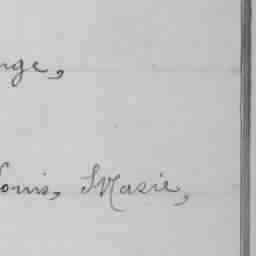 nge,
Louis, Marie,